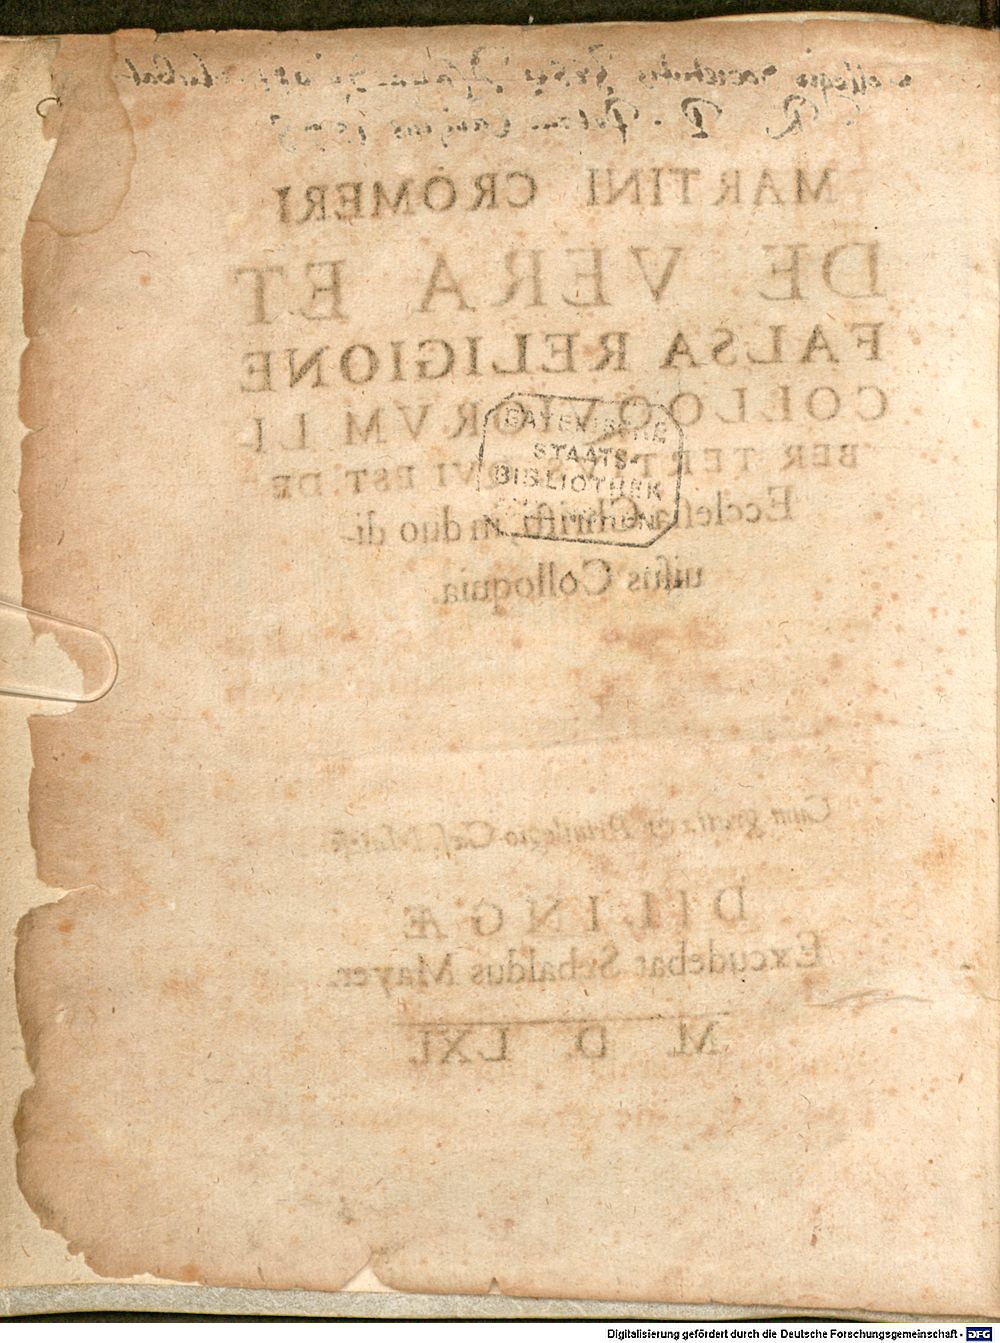 MARTINI CROMERI
DE VERA ET
FALSA RELIGIONE
COLLOQVIORVM LI
BER TERTIVS, QVI EST DE
Ecclesia Christi, in duo di-
uisus Colloquia.
BAYERISCHE
STAATS-
BIBLIOTHEK
MÜNCHEN
Cum gratia et Priuilegio Cæs. Maiest.
DILINGÆ
Excudebat Sebaldus Mayer.
M. D. LXI.
Digitalisierung gefördert durch die Deutsche Forschungsgemeinschaft - DFG